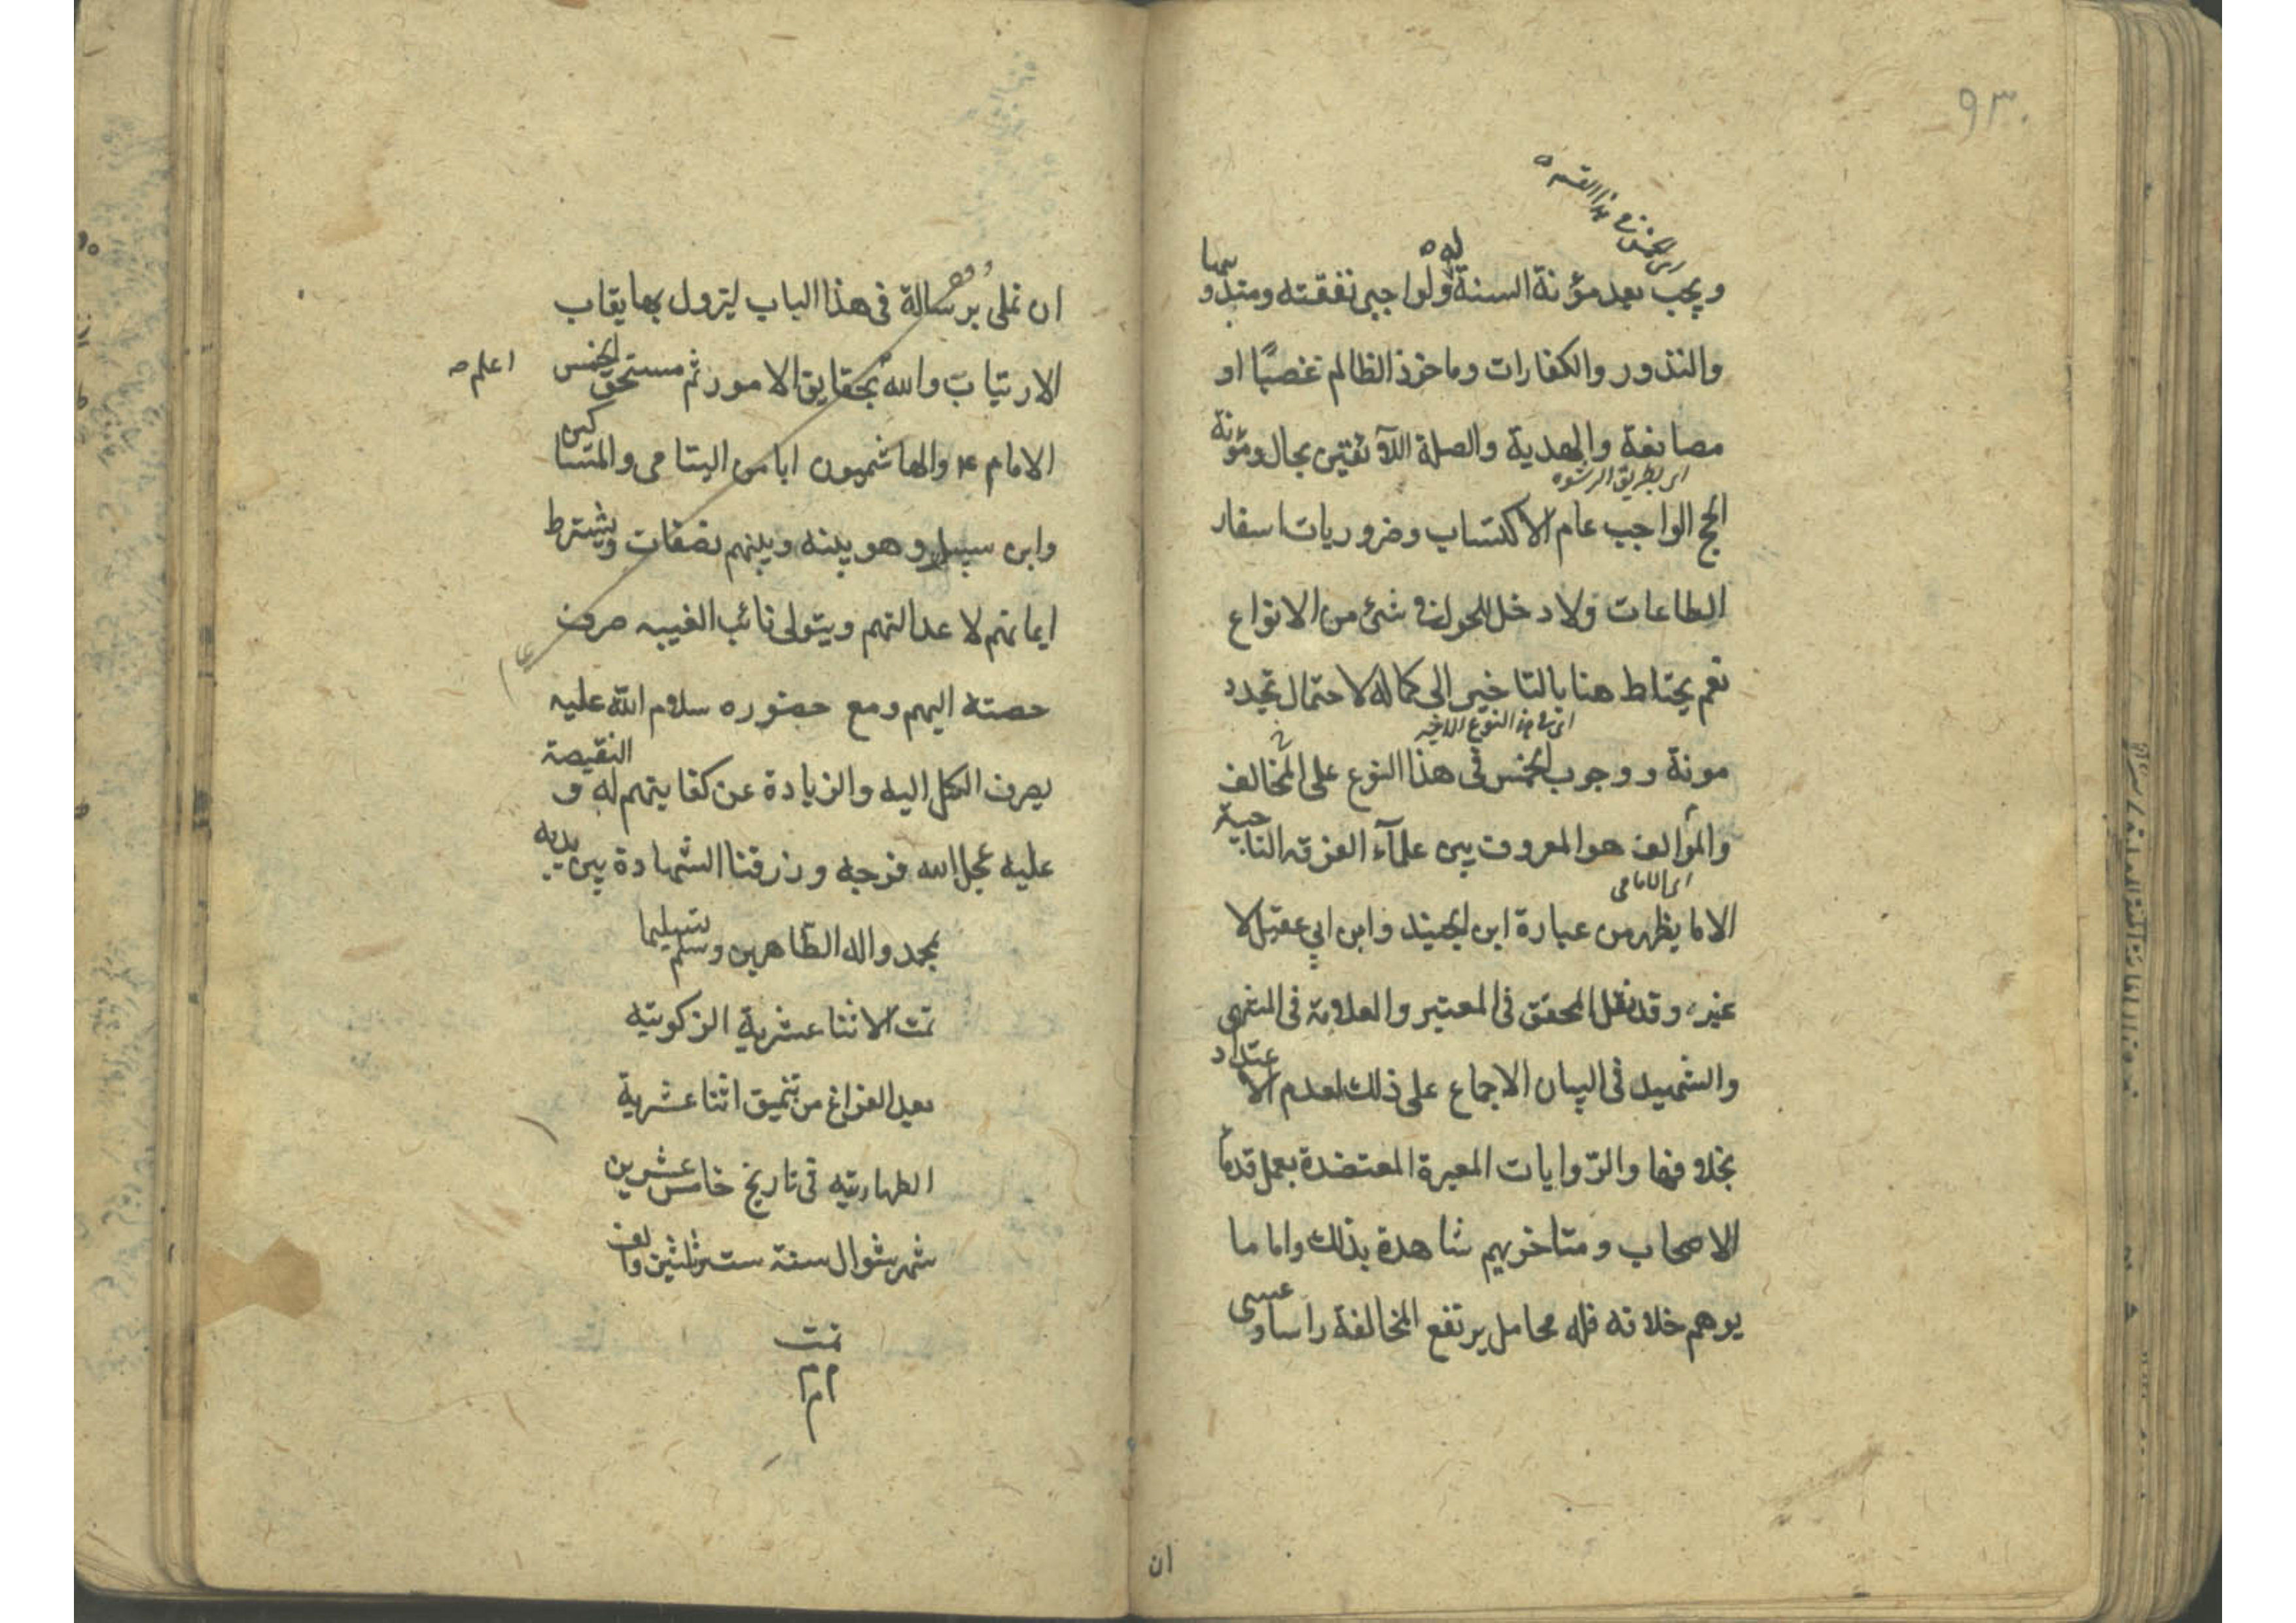 ۹۳۰
ای الخمس فی هذا القسم
ويجب بعد مؤنة السنة له ولواجبی نفقته ومندوبيها
والنذور والكفارات وماخوذ الظالم غصبًا او
مصانعة والهدية والصلة اللآئقتين بحاله ومؤنة
ای بطریق الرشوه
الحج الواجب عام الاكتساب وضروريات اسفار
الطاعات ولا دخل للحول فی شئ من الانواع
نعم يحتاط هنا بالتاخير الى كماله لاحتمال تجدد
ای فی هذا النوع الاخیر
مونة ووجوب الخمس فی هذا النوع على المخالف
والمؤالف هو المعروف بين علمآء الفرقه الناجية
ای الامامی
الا ما يظهر من عبارة ابن الجنيد وابن ابي عقيل لا
غير وقد نقل المحقق فی المعتبر والعلامة فی المنتهى
والشهيد فی البيان الاجماع على ذلك لعدم الاعتداد
بخلافهما والرّوايات المعبرة المعتضدة بعمل قدمآ
الاصحاب ومتاخريهم شاهدة بذلك واما ما
يوهم خلافه فله محامل يرتفع المخالفة راسا وعسى
ان
ان نملی برسالة فی هذا الباب ليزول بها نقاب
الارتياب والله بحقايق الامور ثم مستحق الخمس
اعلم صه
الامام ع والهاشميون ابا من اليتامى والمساكين
وابن سبيل وهو بينه وبينهم نصفات ويشترط
ايمانهم لا عدالتهم ويتولى نائب الغيبه صرف
حصته اليهم ومع حضوره سلام الله عليه
يصرف الكل اليه والزيادة عن كفايتهم له والنقيصة
عليه عجل الله فرجه ورزقنا الشهادة بين يديه
بمحمد واله الطاهرين وسلم تسليما
تمت الاثنا عشرية الزكوتيه
بعد الفراغ من تنميق اثنا عشرية
الطهارتيه فی تاريخ خامس عشرين
شهر شوال سنة ست وثلثين والف
تمت